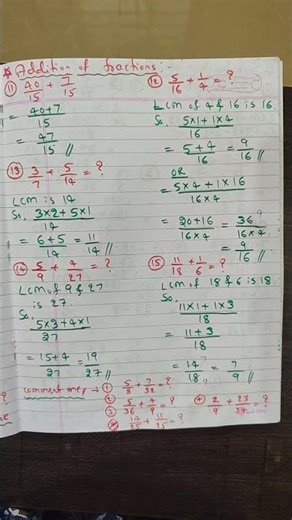 * Addition of fractions:-
⑪ 40/15 + 7/15
= 40+7/15
= 47/15 //
⑬ 3/7 + 5/14 = ?
LCM is 14
So, 3x2+5x1/14
= 6+5/14 = 11/14 //
⑭ 5/9 + 4/27 = ?
LCM of 9 & 27
is 27.
So,
5x3+4x1/27
= 15+4/27 = 19/27 //
⑫ 5/16 + 1/4 = ?
LCM of 4 & 16 is 16
So, 5x1+1x4/16
= 5+4/16 = 9/16 //
OR
= 5x4+1x16/16x4
= 20+16/16x4 = 36 9/16x4
= 9/16 //
⑮ 11/18 + 1/6 = ?
LCM of 18 & 6 is 18
So,
11x1+1x3/18
= 11+3/18
= 14 7/18 9 = 7/9 //
comment any → ① 5/8 + 7/32 = ?
② 5/36 + 4/9 = ?
③
④ 2/9 + 23/